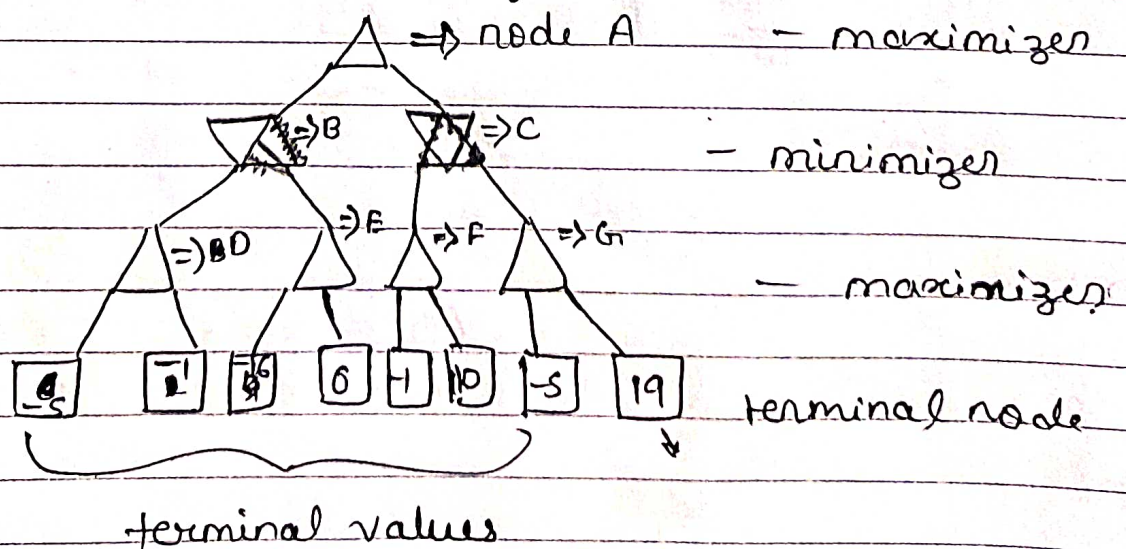 => node A - maximizer
=> B => C - minimizer
=> D => E => F => G - maximizer
-5 -1 -6 0 -1 10 -5 19 terminal node
terminal values